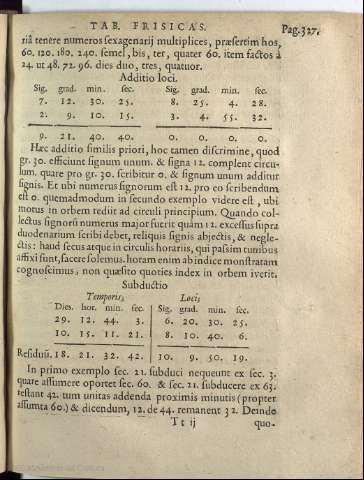 TAB. FRISICAS. Pag.327.
riâ tenere numeros sexagenarij multiplices, præsertim hos,
60. 120. 180. 240. semel, bis, ter, quater 60. item factos à
24. ut 48. 72. 96. dies duo, tres, quatuor.
Additio loci.
Sig. grad. min. sec. Sig. grad. min. sec.
7. 12. 30. 25. 8. 25. 4. 28.
2. 9. 10. 15. 3. 4. 55. 32.
9. 21. 40. 40. 0. 0. 0. 0.
Hæc additio similis priori, hoc tamen discrimine, quod
gr. 30. efficiunt signum unum. & signa 12. complent circu-
lum. quare pro gr. 30. scribitur 0. & signum unum additur
signis. Et ubi numerus signorum est 12. pro eo scribendum
est 0. quemadmodum in secundo exemplo videre est, ubi
motus in orbem rediit ad circuli principium. Quando col-
lectus signorū numerus major fuerit quàm 12. excessus supra
duodenarium scribi debet, reliquis signis abjectis, & negle-
ctis: haud secus atque in circulis horariis, qui passim turribus
affixi sunt, facere solemus. horam enim ab indice monstratam
cognoscimus, non quæsito quoties index in orbem iverit.
Subductio
Temporis, Locis
Dies. hor. min. sec. Sig. grad. min. sec.
29. 12. 44. 3. 6. 20. 30. 25.
10. 15. 11. 21. 8. 10. 40. 6.
Residui. 18. 21. 32. 42. 10. 9. 50. 19.
In primo exemplo sec. 21. subduci nequeunt ex sec. 3.
quare assumere oportet sec. 60. & sec. 21. subducere ex 63.
restant 42. tum unitas addenda proximis minutis (propter
assumta 60.) & dicendum, 12. de 44. remanent 32. Deindo
Tt ij quo-